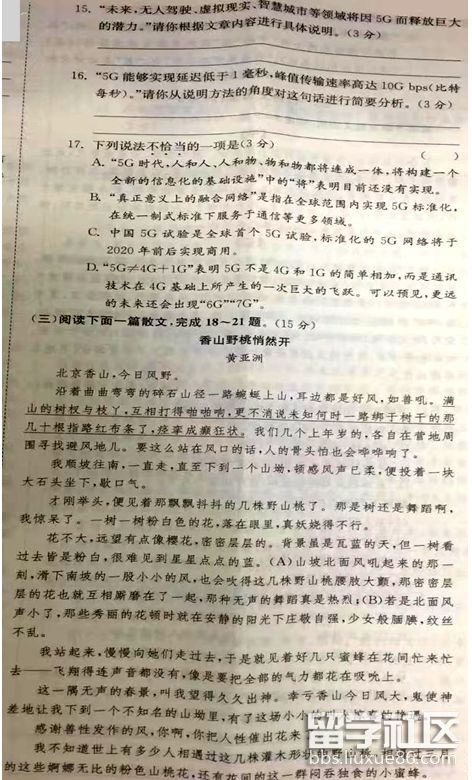 15. “未来,无人驾驶、虚拟现实、智慧城市等领域将因5G而释放巨大
的潜力。”请你根据文章内容进行具体说明。(3分)
16. “5G能够实现延迟低于1毫秒,峰值传输速率高达10G bps(比特
每秒)。”请你从说明方法的角度对这句话进行简要分析。(3分)
17. 下列说法不恰当的一项是(3分) ( )
A. “5G时代,人和人、人和物、物和物都将连成一体,将构建一个
全新的信息化的基础设施”中的“将”表明目前还没有实现。
B. “真正意义上的融合网络”是指在全球范围内实现5G标准化,
在统一制式标准下服务于通信等更多领域。
C. 中国5G试验是全球首个5G试验,标准化的5G网络将于
2020年前后实现商用。
D. “5G≠4G+1G”表明5G不是4G和1G的简单相加,而是通讯
技术在4G基础上所产生的一次巨大的飞跃。可以预见,更远
的未来还会出现“6G”“7G”。
(三)阅读下面一篇散文,完成18~21题。(15分)
香山野桃悄然开
黄亚洲
北京香山,今日风野。
沿着曲曲弯弯的碎石山径一路蜿蜒上山,耳边都是好风,如兽吼。满
山的树杈与枝丫,互相打得啪啪响,更不消说未知何时一路绑于树干的那
几十根指路红布条了,痉挛成癫狂状。我们几个上年岁的,各自在营地周
围寻找避风地儿。要这么站在风口的话,人的骨头怕也会哗哗响了。
我顺坡往南,一直走,直至下到一个山坳,顿感风声已柔,便投着一块
大石头坐下,歇口气。
才刚举头,便见着那飘飘抖抖的几株野山桃了。那是树还是舞蹈啊,
我惊呆了。一树一树粉白色的花,落在眼里,真妖娆得不行。
花不大,远望有点像樱花,密密层层的。背景虽是瓦蓝的天,但一树看
过去皆是粉白,很难见到星星点点的蓝。(A)山坡北面风吼起来的那一
刻,滑下南坡的一股小小的风,也会吹得这几株野山桃腰肢大颤,那密密层
层的花也就互相厮磨在了一起,那种无声的舞蹈真是热烈;(B)若是北面风
声小了,那些秀丽的花顿时就在安静的阳光下庄敬自强,少女般腼腆,纹丝
不乱。
我站起来,慢慢向她们走过去,于是就见着好几只蜜蜂在花间忙来忙
去——飞翔得连声音都没有,像是要把全部的气力都花在吸吮上。
这一隅无声的春景,叫我望得久久出神。幸亏香山今日风大,鬼使神
差地让我下到一个不知名的山坳里,有了这场小小的
感谢兽性发作的风,你啊,你把人性催出花来
我不知道世上有多少人相遇过这几株灌木形状的野山桃,相遇过三月
的这些婀娜无比的粉色山桃花,还有花间的这一群闷吞独食的小蜜蜂。
留学社区
bbs.liuxue86.com